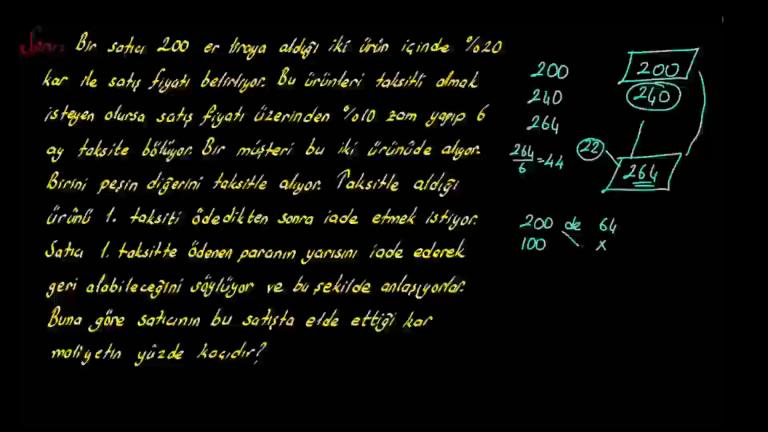 Soru: Bir satıcı 200 er liraya aldığı iki ürün içinde %20
kar ile satış fiyatı belirliyor. Bu ürünleri taksitli almak
isteyen olursa satış fiyatı üzerinden %10 zam yapıp 6
ay taksite bölüyor. Bir müşteri bu iki üründe alıyor.
Birini peşin diğerini taksitle alıyor. Taksitle aldığı
ürünü 1. taksiti ödedikten sonra iade etmek istiyor.
Satıcı 1. taksitte ödenen paranın yarısını iade ederek
geri alabileceğini söylüyor ve bu şekilde anlaşıyorlar.
Buna göre satıcının bu satışta elde ettiği kar
maliyetin yüzde kaçıdır?
200
240
264
264/6 = 44
22
200
240
264
200 de 64
100 x